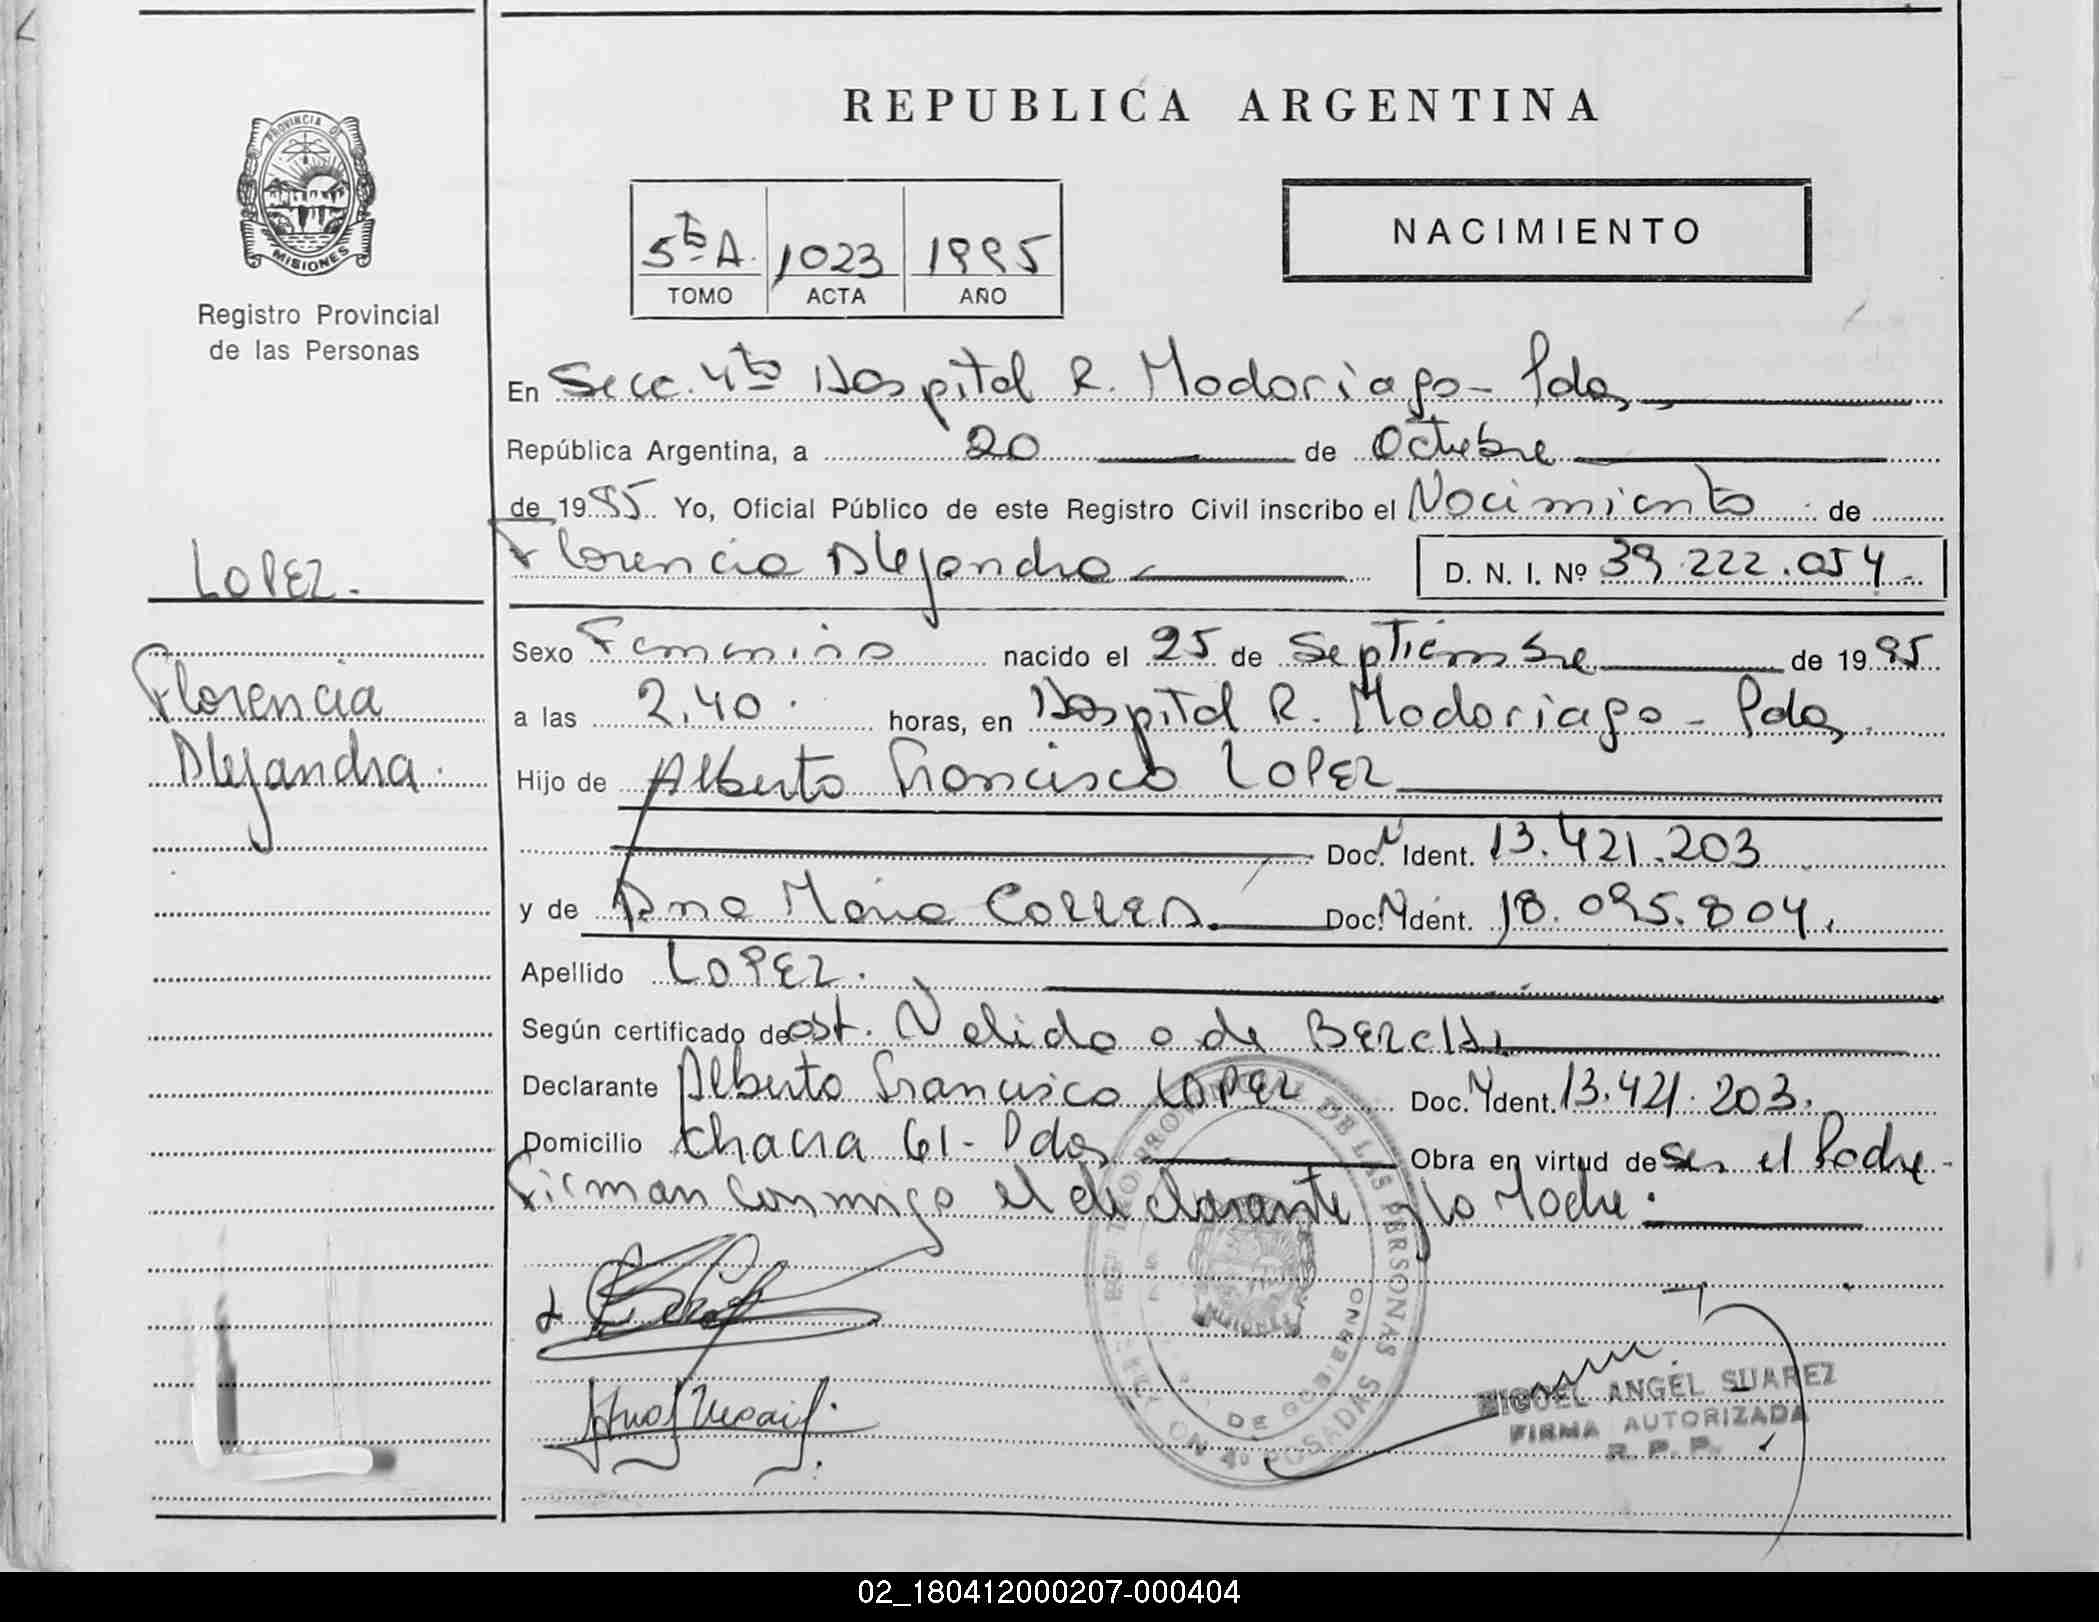 REPUBLICA ARGENTINA
PROVINCIA DE
MISIONES
Registro Provincial
de las Personas
5ta A. 1023 1995
TOMO ACTA AÑO
NACIMIENTO
En Secc. 4ta Hospital R. Madariaga - Pdas
República Argentina, a 20 de Octubre
de 1995 Yo, Oficial Público de este Registro Civil inscribo el Nacimiento de
Florencia Alejandra D. N. I. Nº 39.222.054
LOPEZ.
Florencia
Alejandra.
Sexo Femenino nacido el 25 de Septiembre de 1995
a las 2,40 horas, en Hospital R. Madariaga - Pdas
Hijo de Alberto Francisco LOPEZ
Doc. N Ident. 13.421.203
y de Ana Maria Doc. N Ident. 18.095.804.
Apellido LOPEZ.
Según certificado de ost. Nelida o de
Declarante Alberto Francisco LOPEZ Doc. N Ident. 13.421.203.
Domicilio Chacra 61 - Pdas Obra en virtud de ser el Padre -
Firman conmigo el declarante y la Madre.
DE LAS PERSONAS
POSADAS
DE GOBIERNO
MIGUEL ANGEL SUAREZ
FIRMA AUTORIZADA
R. P. P.
02_180412000207-000404